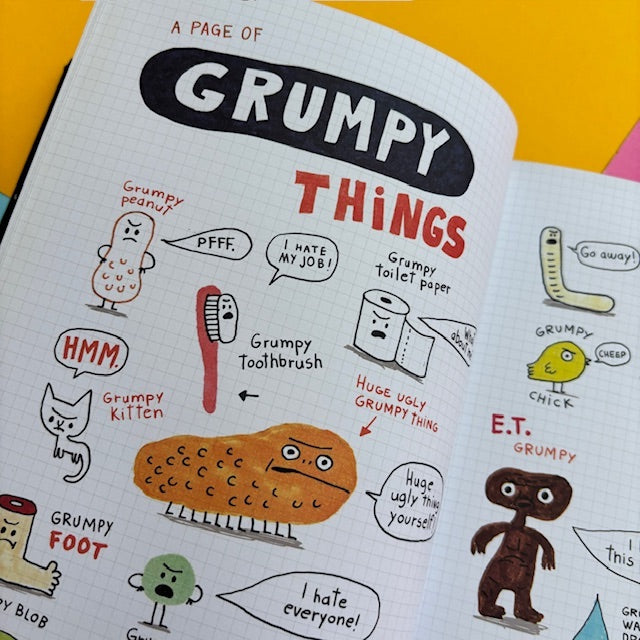 A PAGE OF
GRUMPY
THiNGS
Grumpy
peanut
PFFF.
I HATE
MY JOB!
Grumpy
toilet paper
Grumpy
toothbrush
HMM.
Grumpy
Kitten
HUGE UGLY
GRUMPY THING
Huge
ugly thing
yourself!
GRUMPY
FOOT
I hate
everyone!
BLOB
Go away!
GRUMPY
CHEEP
CHICK
E.T.
GRUMPY
I
this